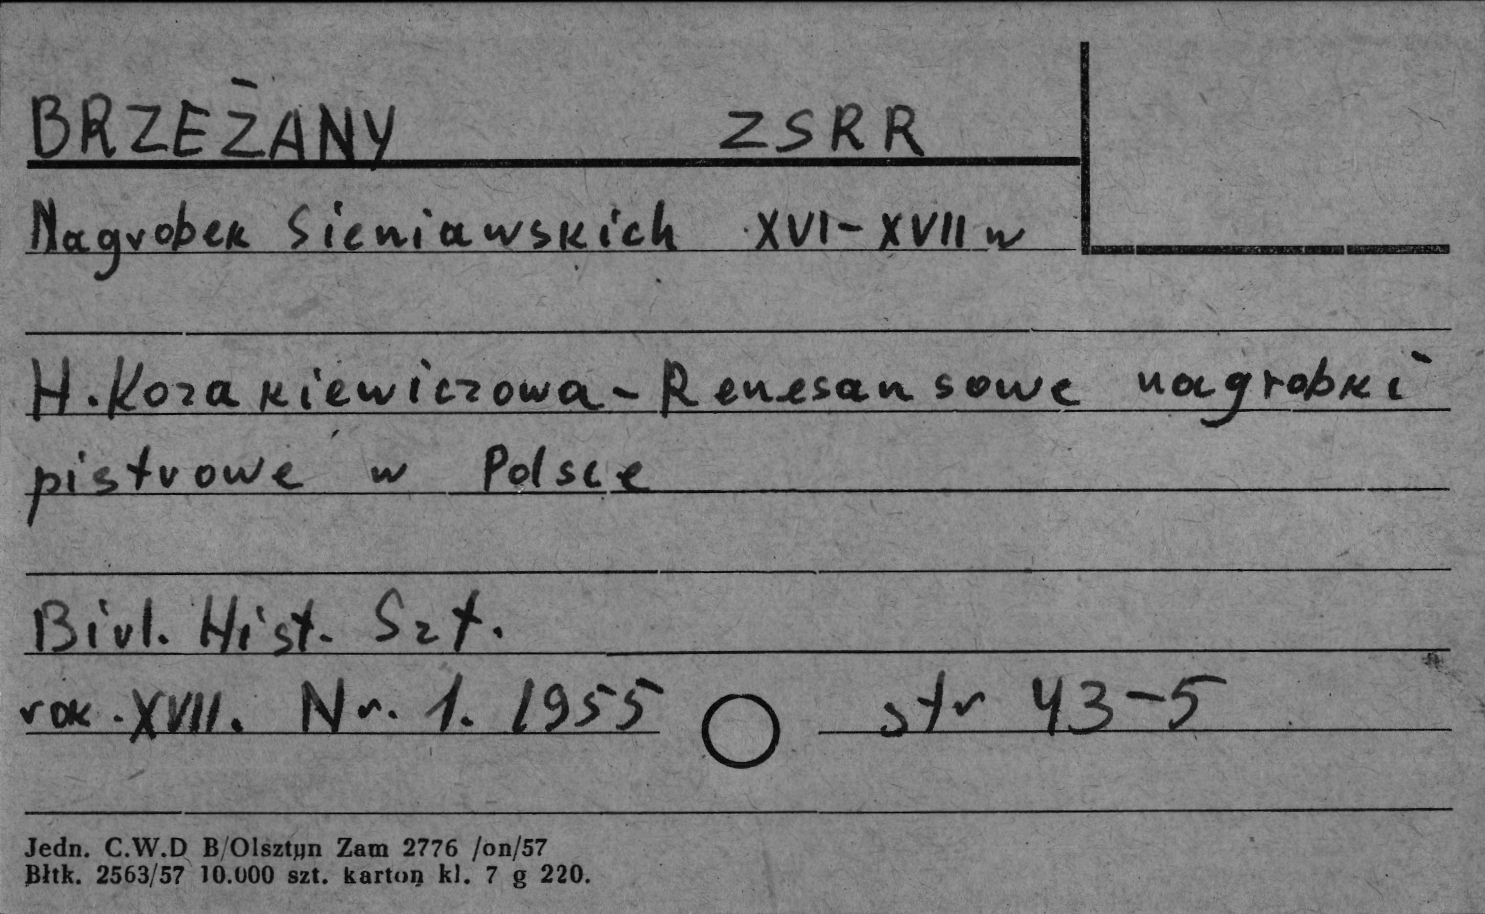 BRZEŻANY ZSRR
Nagrobek Sieniawskich XVI-XVII w
H. Kozakiewiczowa - Renesansowe nagrobki
pistrowe w Polsce
Biul. Hist. Szt.
rok. XVII. Nr. 1. 1955 str 43-5
Jedn. C.W.D B/Olsztyn Zam 2776 /on/57
Błtk. 2563/57 10.000 szt. karton kl. 7 g 220.